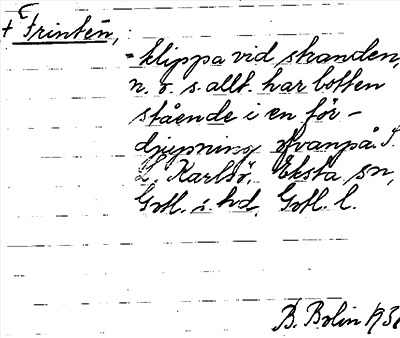 + Frintén,
- klippa vid stranden,
n. o. s. allt. har botten
stående i en för-
djupning ofvanpå. S.
L. Karlsö, Eksta sn,
Gotl. s. hd. Gotl. l.
B. Bolin 193